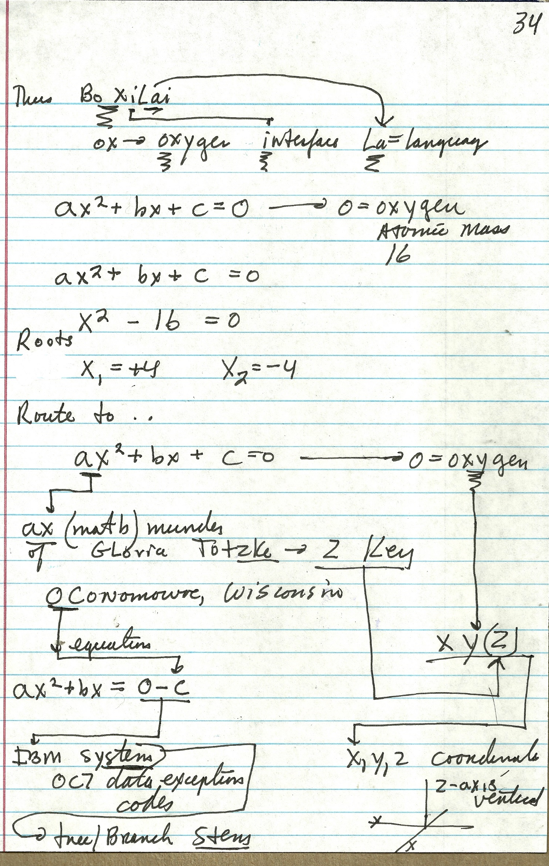 34
Thus Bo XiLai
ox → oxygen interface La = language
ax² + bx + c = 0 → 0 = oxygen
Atomic Mass
16
ax² + bx + c = 0
x² - 16 = 0
Roots
X₁ = +4 X₂ = -4
Route to ..
ax² + bx + c = 0 → 0 = oxygen
ax (math) murder
of Gloria Totzke → Z Key
Oconomowoc, Wisconsin
equation
x y (z)
ax² + bx = 0 - c
IBM system X, Y, Z coordinate
OC7 data exception
codes
z-axis
vertical
tree/Branch Stems
x
x